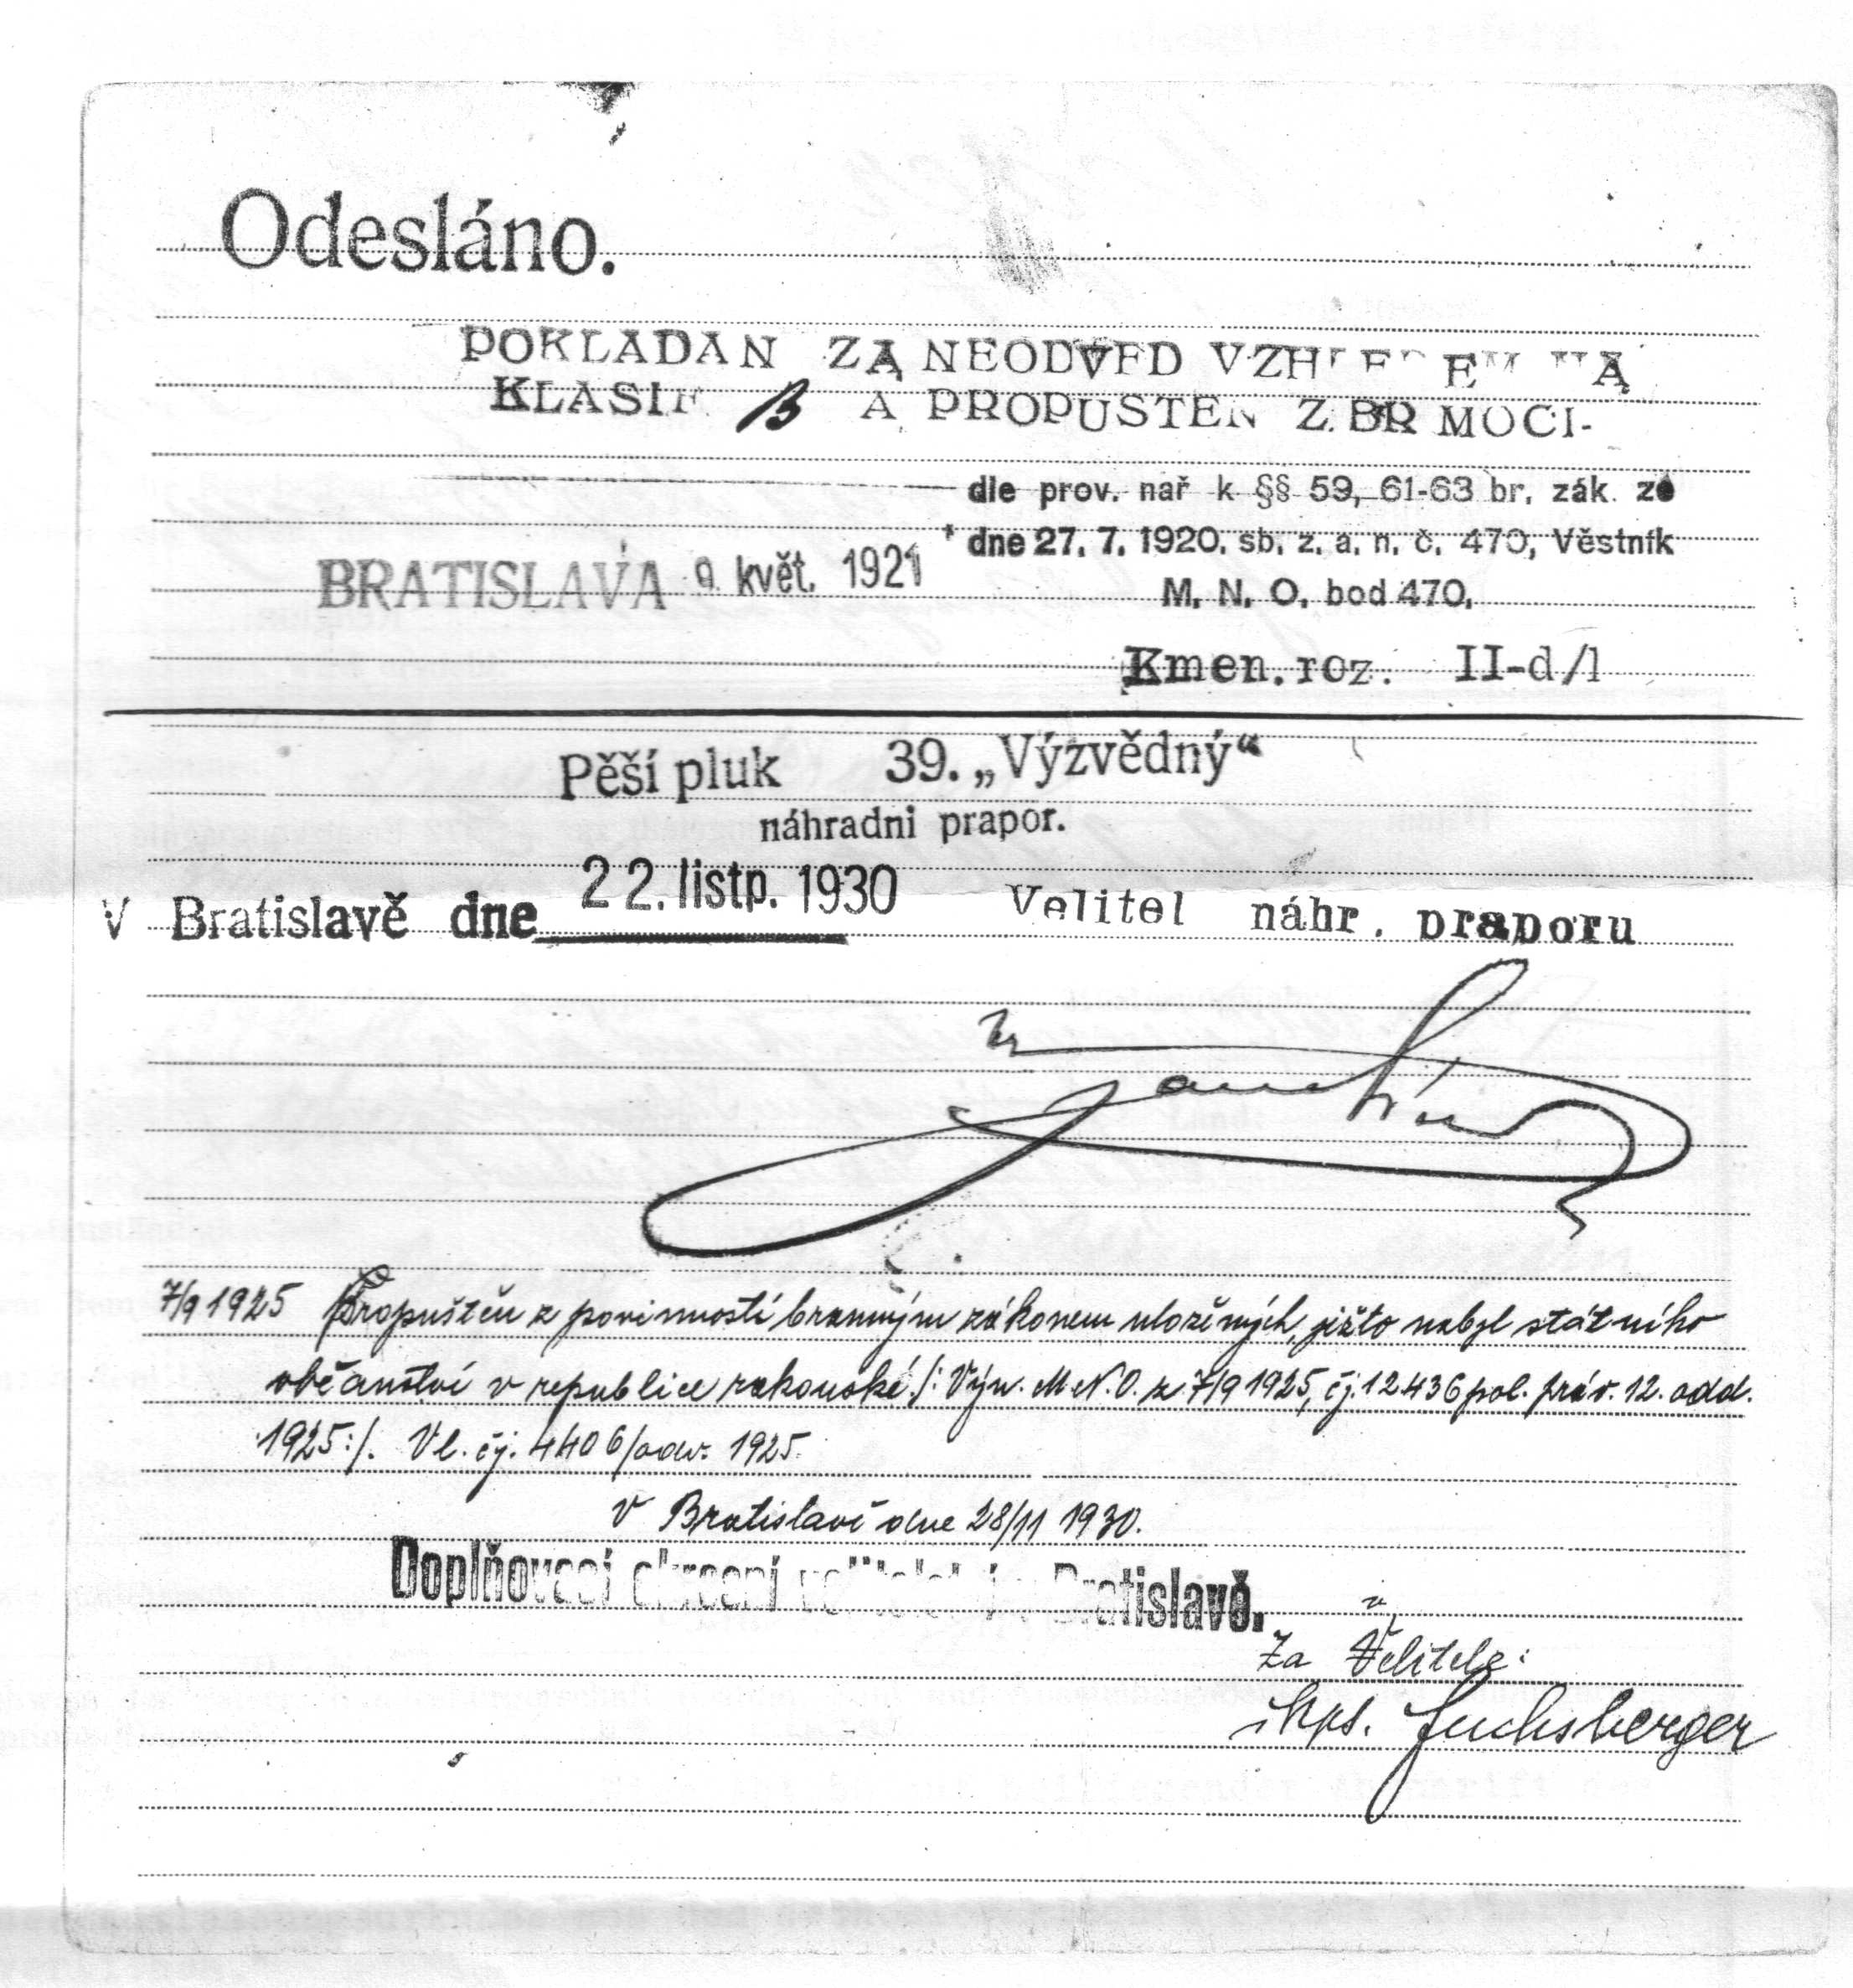 Odesláno.
POKLADAN ZA NEODVED VZHLEDEM NA
KLASIF. B A PROPUSTEN Z. BR MOCI-
dle prov. nař k §§ 59, 61-63 br. zák. ze
dne 27. 7. 1920. sb. z. a. n. č. 470, Věstník
BRATISLAVA 9. květ. 1921
M. N. O. bod 470.
Kmen. roz. II-d/1
Pěší pluk 39. „Výzvědný“
náhradni prapor.
V Bratislavě dne 22. listp. 1930 Velitel náhr. praporu
7/9 1925 Propuštěn z povinností branným zákonem uložených, ježto nabyl státního
občanství v republice rakouské /: Výn. M.N.O. z 7/9 1925, čj. 12436 pol. práv. 12. odd.
1925:/. Vl. čj. 4406/odv. 1925.
V Bratislavě dne 28/11 1930.
Doplňovací okresní velitelství v Bratislavě.
Za Velitele:
škpt. Fuchsberger